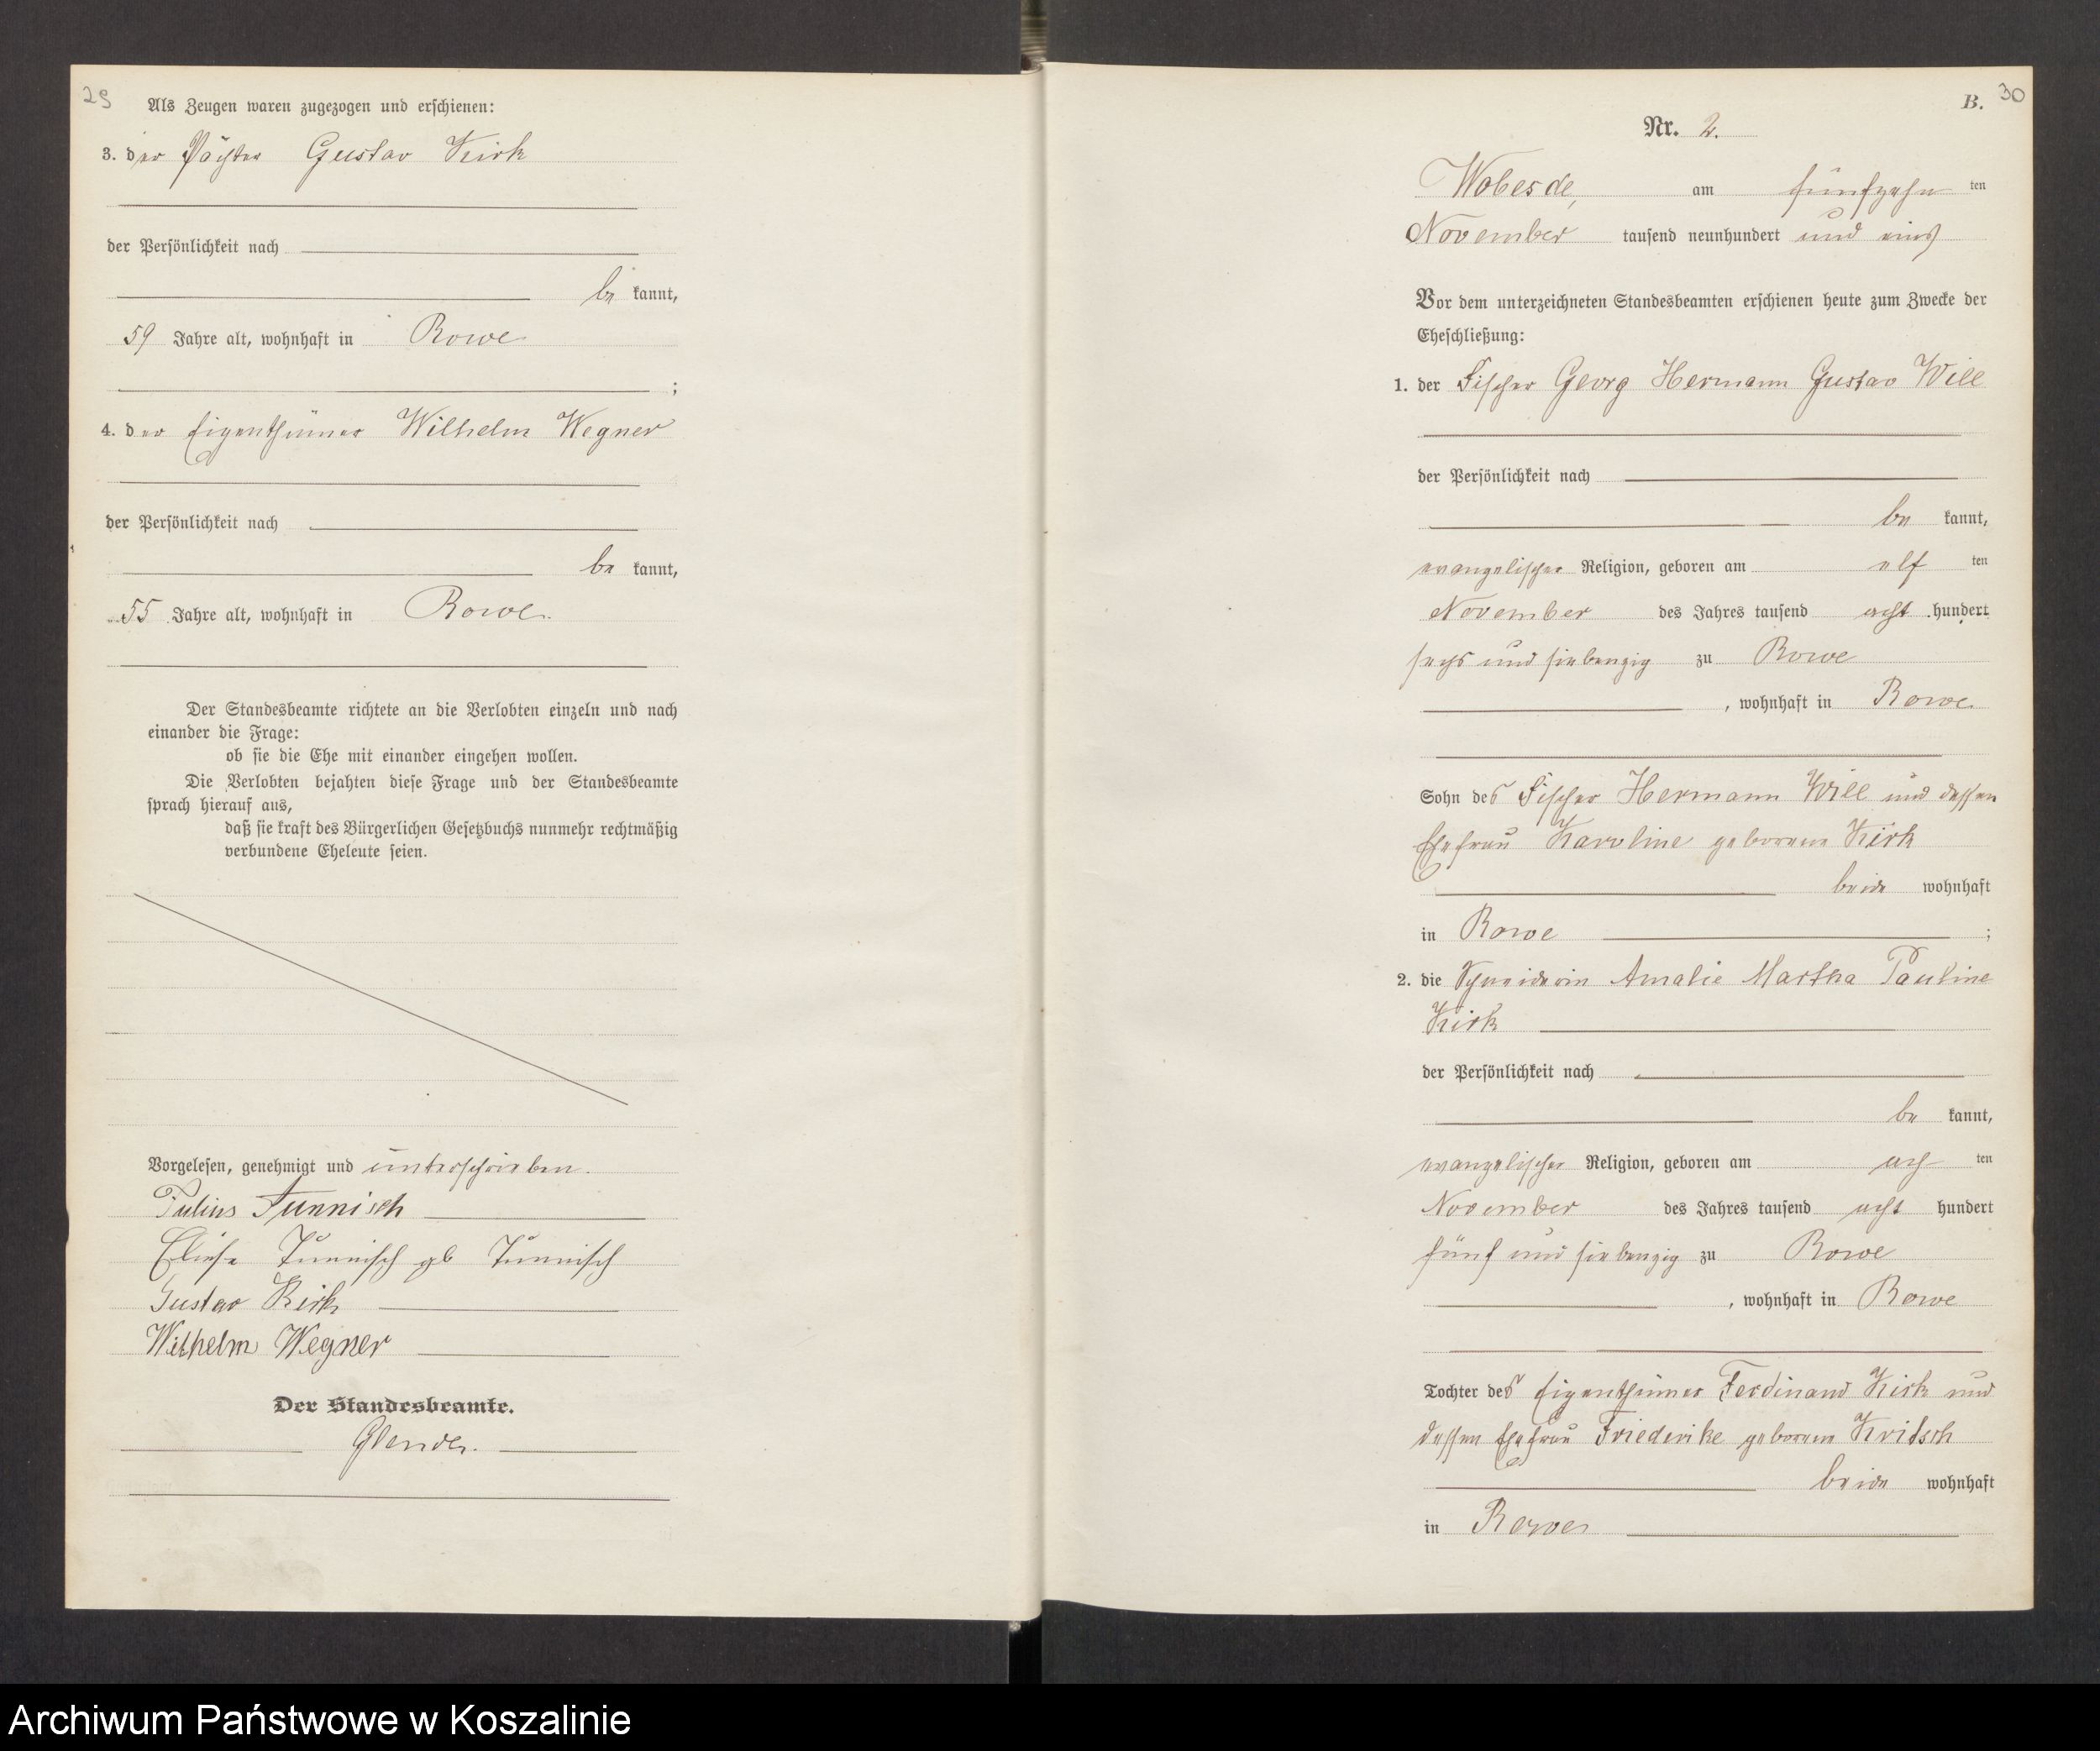 29
Als Zeugen waren zugezogen und erschienen:
3. der Pächter Gustav Kirk
der Persönlichkeit nach
be kannt,
59 Jahre alt, wohnhaft in Rowe
;
4. der Eigenthümer Wilhelm Wegner
der Persönlichkeit nach
be kannt,
55 Jahre alt, wohnhaft in Rowe
Der Standesbeamte richtete an die Verlobten einzeln und nach
einander die Frage:
ob sie die Ehe mit einander eingehen wollen.
Die Verlobten bejahten diese Frage und der Standesbeamte
sprach hierauf aus,
daß sie kraft des Bürgerlichen Gesetzbuchs nunmehr rechtmäßig
verbundene Eheleute seien.
Vorgelesen, genehmigt und unterschrieben.
Julius Tunnisch
Eliese Tunnisch gb Tunnisch
Gustav Kirk
Wilhelm Wegner
Der Standesbeamte.
B. 30
Nr. 2.
Wobesde, am fünfzehn ten
November tausend neunhundert und eins
Vor dem unterzeichneten Standesbeamten erschienen heute zum Zwecke der
Eheschließung:
1. der Fischer Georg Hermann Gustav Will
der Persönlichkeit nach
be kannt,
evangelischer Religion, geboren am elf ten
November des Jahres tausend acht hundert
sechs und siebenzig zu Rowe
, wohnhaft in Rowe
Sohn des Fischer Hermann Will und dessen
Ehefrau Karoline geborene Kirk
beide wohnhaft
in Rowe ;
2. die Schneiderin Amalie Martha Pauline
Kirk
der Persönlichkeit nach
be kannt,
evangelischer Religion, geboren am ach ten
November des Jahres tausend acht hundert
fünf und siebenzig zu Rowe
, wohnhaft in Rowe
Tochter des Eigenthümer Ferdinand Kirk und
dessen Ehefrau Friederike geborene Kritsch
beide wohnhaft
in Rowe
Archiwum Państwowe w Koszalinie